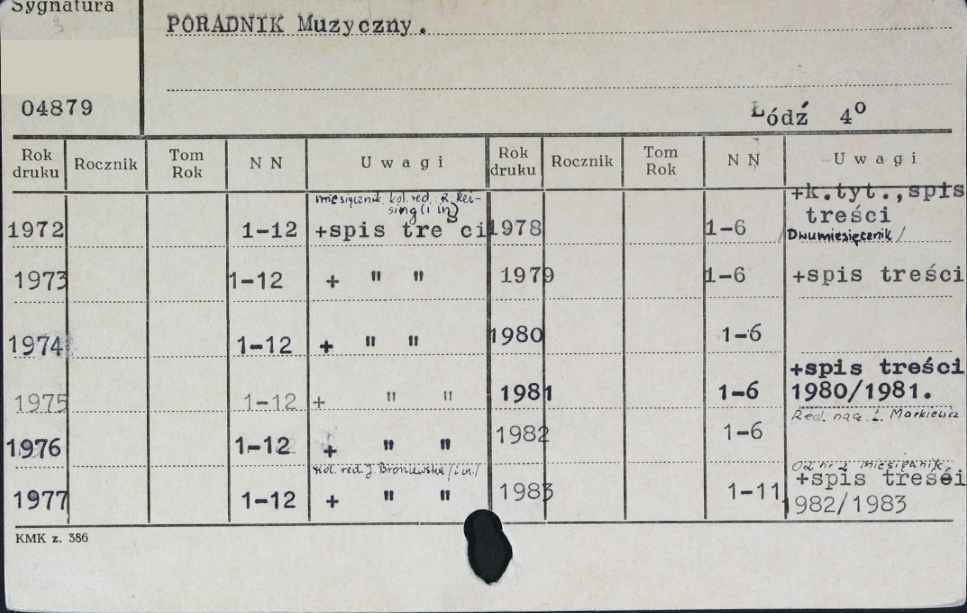 Sygnatura
PORADNIK Muzyczny.
04879
Łódź 4º
Rok druku Rocznik Tom Rok NN Uwagi Rok druku Rocznik Tom Rok NN Uwagi
miesięcznik kol. red.
sing (i in)
+k.tyt., spis
treści
1972 1-12 +spis tre ci 1978 1-6 /Dwumiesięcznik/
1973 1-12 + " " 1979 1-6 +spis treści
1974 1-12 + " " 1980 1-6
+spis treści
1975 1-12 + " " 1981 1-6 1980/1981.
Red. nacz. Ł. Markiewicz
1976 1-12 + " " 1982 1-6
kol. red. J. Broniewska /i in./
Od nr 2 miesięcznik
+spis treści
1977 1-12 + " " 1983 1-11 1982/1983
KMK z. 386